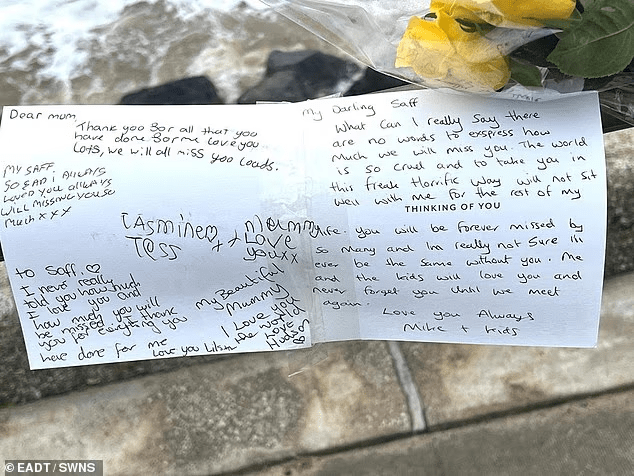 Dear mum,
Thank you for all that you
have done for me love you
Lots, we will all miss you loads.
MY SAFF.
SO SAD I ALWAYS
LOVED YOU ALWAYS
WILL MISS YOU SO
MUCH XXX
JASMINE
TESS
mummy
Love
you xx
to Saff.
I never really
told you how much
I love you and
how much you will
be missed. I thank
you for everything you
have done for me
Love you
My Beautiful
Mummy
I Love you
the world
Love
Hudson
My Darling Saff
What Can I really Say there
are no words to express how
Much we will miss you. The world
is So Cruel and to take you in
this freak Horrific way will not Sit
Well with me for the rest of my
THINKING OF YOU
life. You will be forever missed by
So many and Im really not Sure Ill
ever be the Same without you. Me
and the kids will love you and
never forget you Until we meet
again.
Love you Always
Mike + kids
© EADT / SWNS